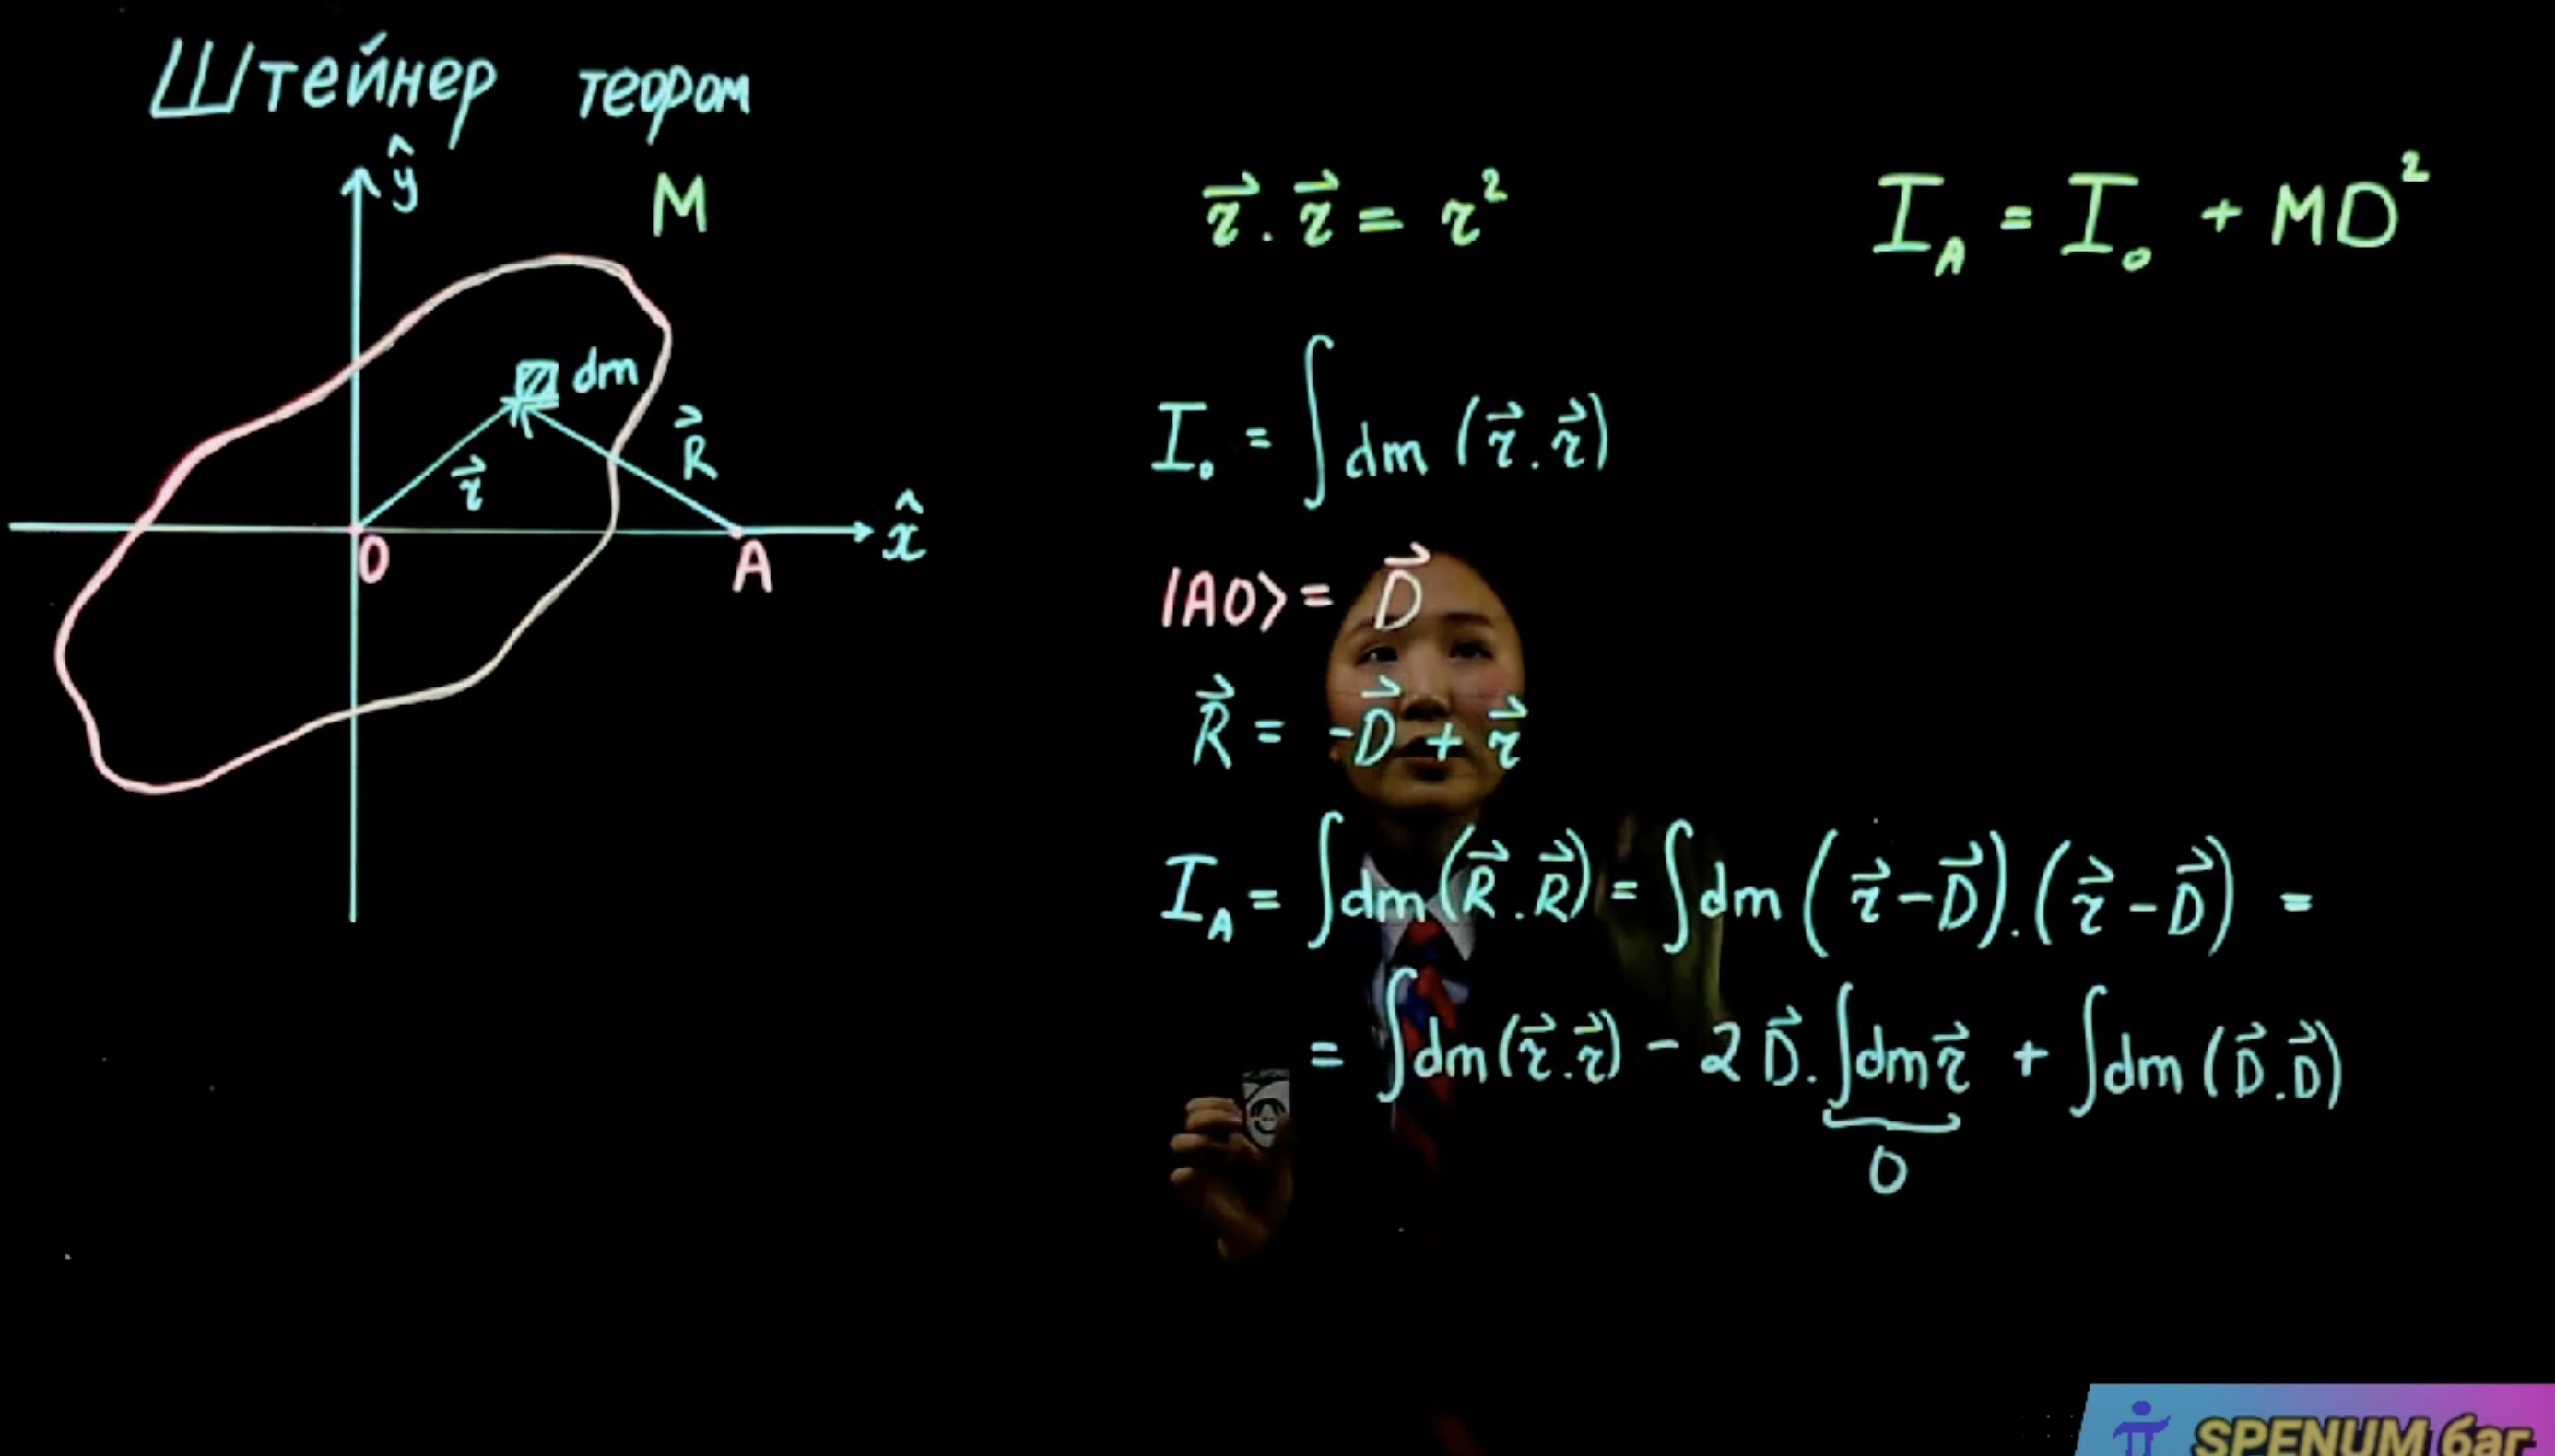 Штейнер теором
ŷ
M
dm
r⃗
R⃗
O
A
x̂
r⃗ . r⃗ = r²
I_A = I_o + MD²
I_o = ∫dm (r⃗ . r⃗)
|AO⟩ = D⃗
R⃗ = -D⃗ + r⃗
I_A = ∫dm (R⃗ . R⃗) = ∫dm (r⃗ - D⃗) . (r⃗ - D⃗) =
= ∫dm (r⃗ . r⃗) - 2 D⃗ . ∫dm r⃗ + ∫dm (D⃗ . D⃗)
0
SPENUM баг